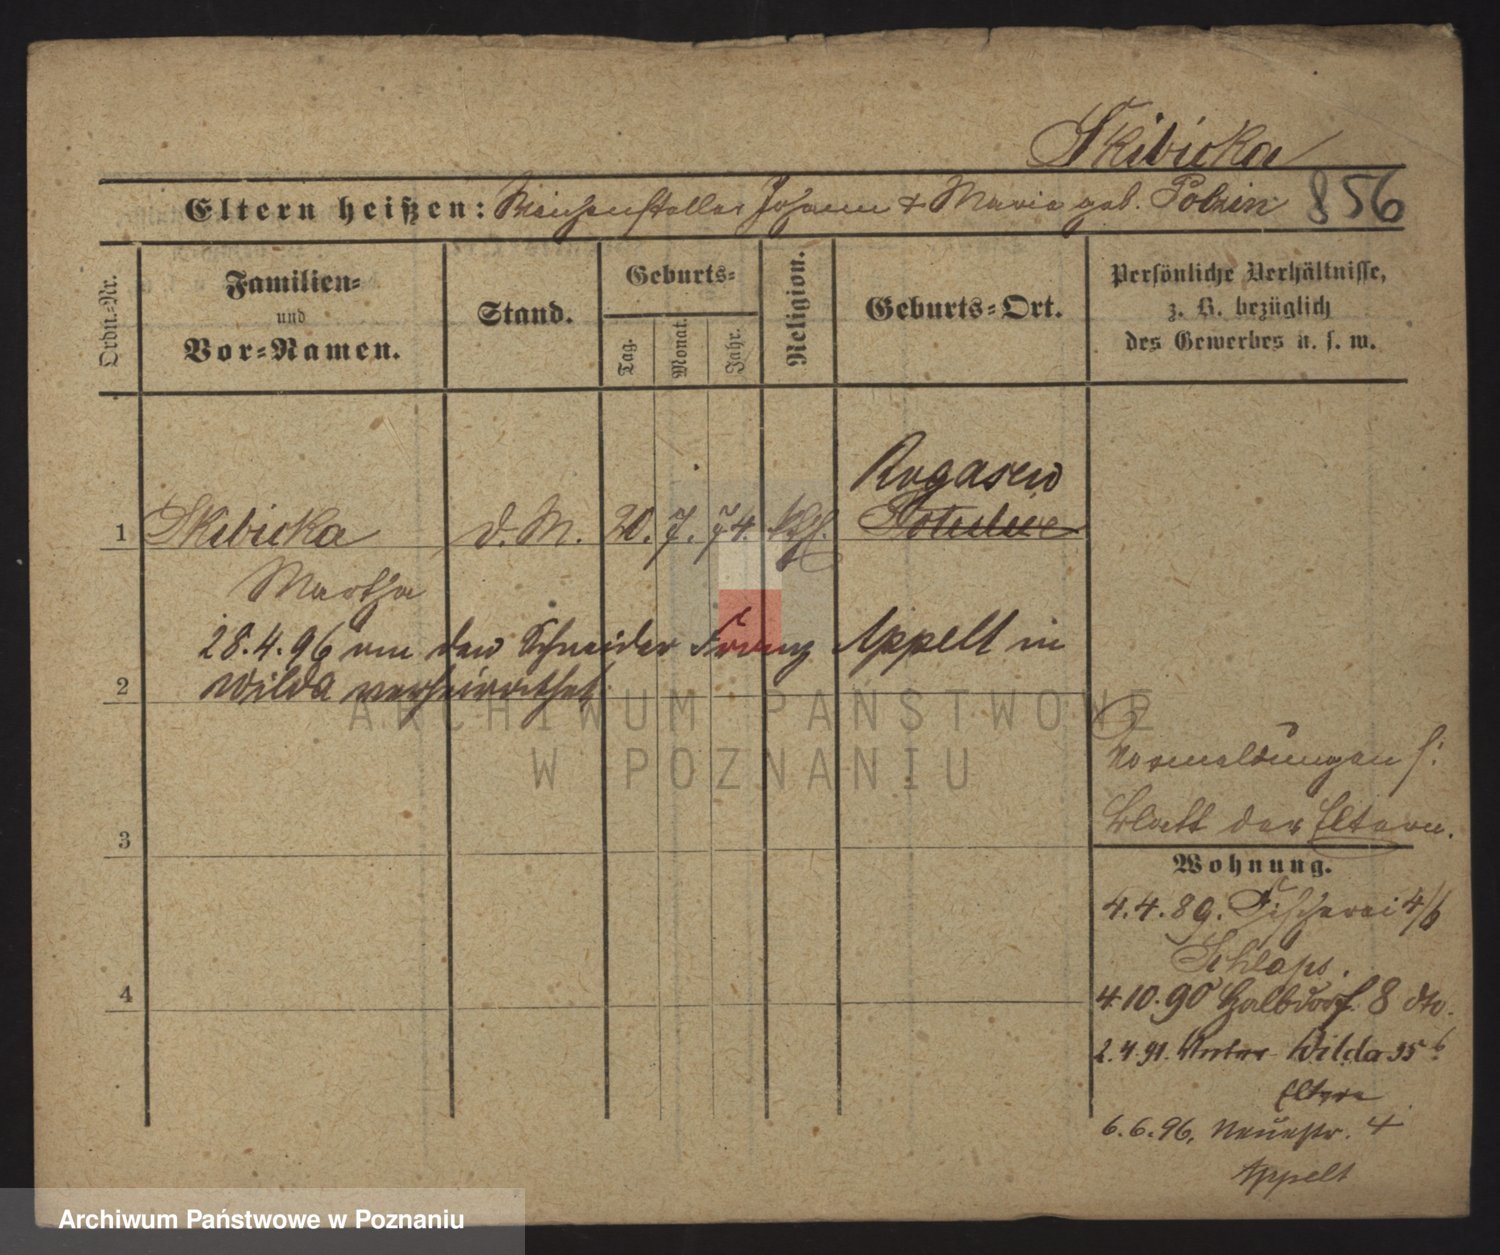 Skibicka
Eltern heißen: Weichensteller Johann & Maria geb. Polzin 856
Ordn.-Nr.
Familien-
und
Vor-Namen.
Stand.
Geburts-
Tag.
Monat.
Jahr.
Religion.
Geburts-Ort.
Persönliche Verhältnisse,
z. B. bezüglich
des Gewerbes u. s. w.
Rogasen
1 Skibicka d. M. 20. 7. 74. kth.
Martha
28.4.96 mit dem Schneider Franz Appelt in
Wilda verheirathet
2
3
4
Vormeldungen s:
Blatt der Eltern.
Wohnung.
4.4.89. Fischerei 4/6
Schlaps.
4.10.90 Halbdorf. 8 dto.
2.4.91. Wilda 35
Eltern
6.6.96. Neuestr. 4
Appelt
ARCHIWUM PAŃSTWOWE
W POZNANIU
Archiwum Państwowe w Poznaniu